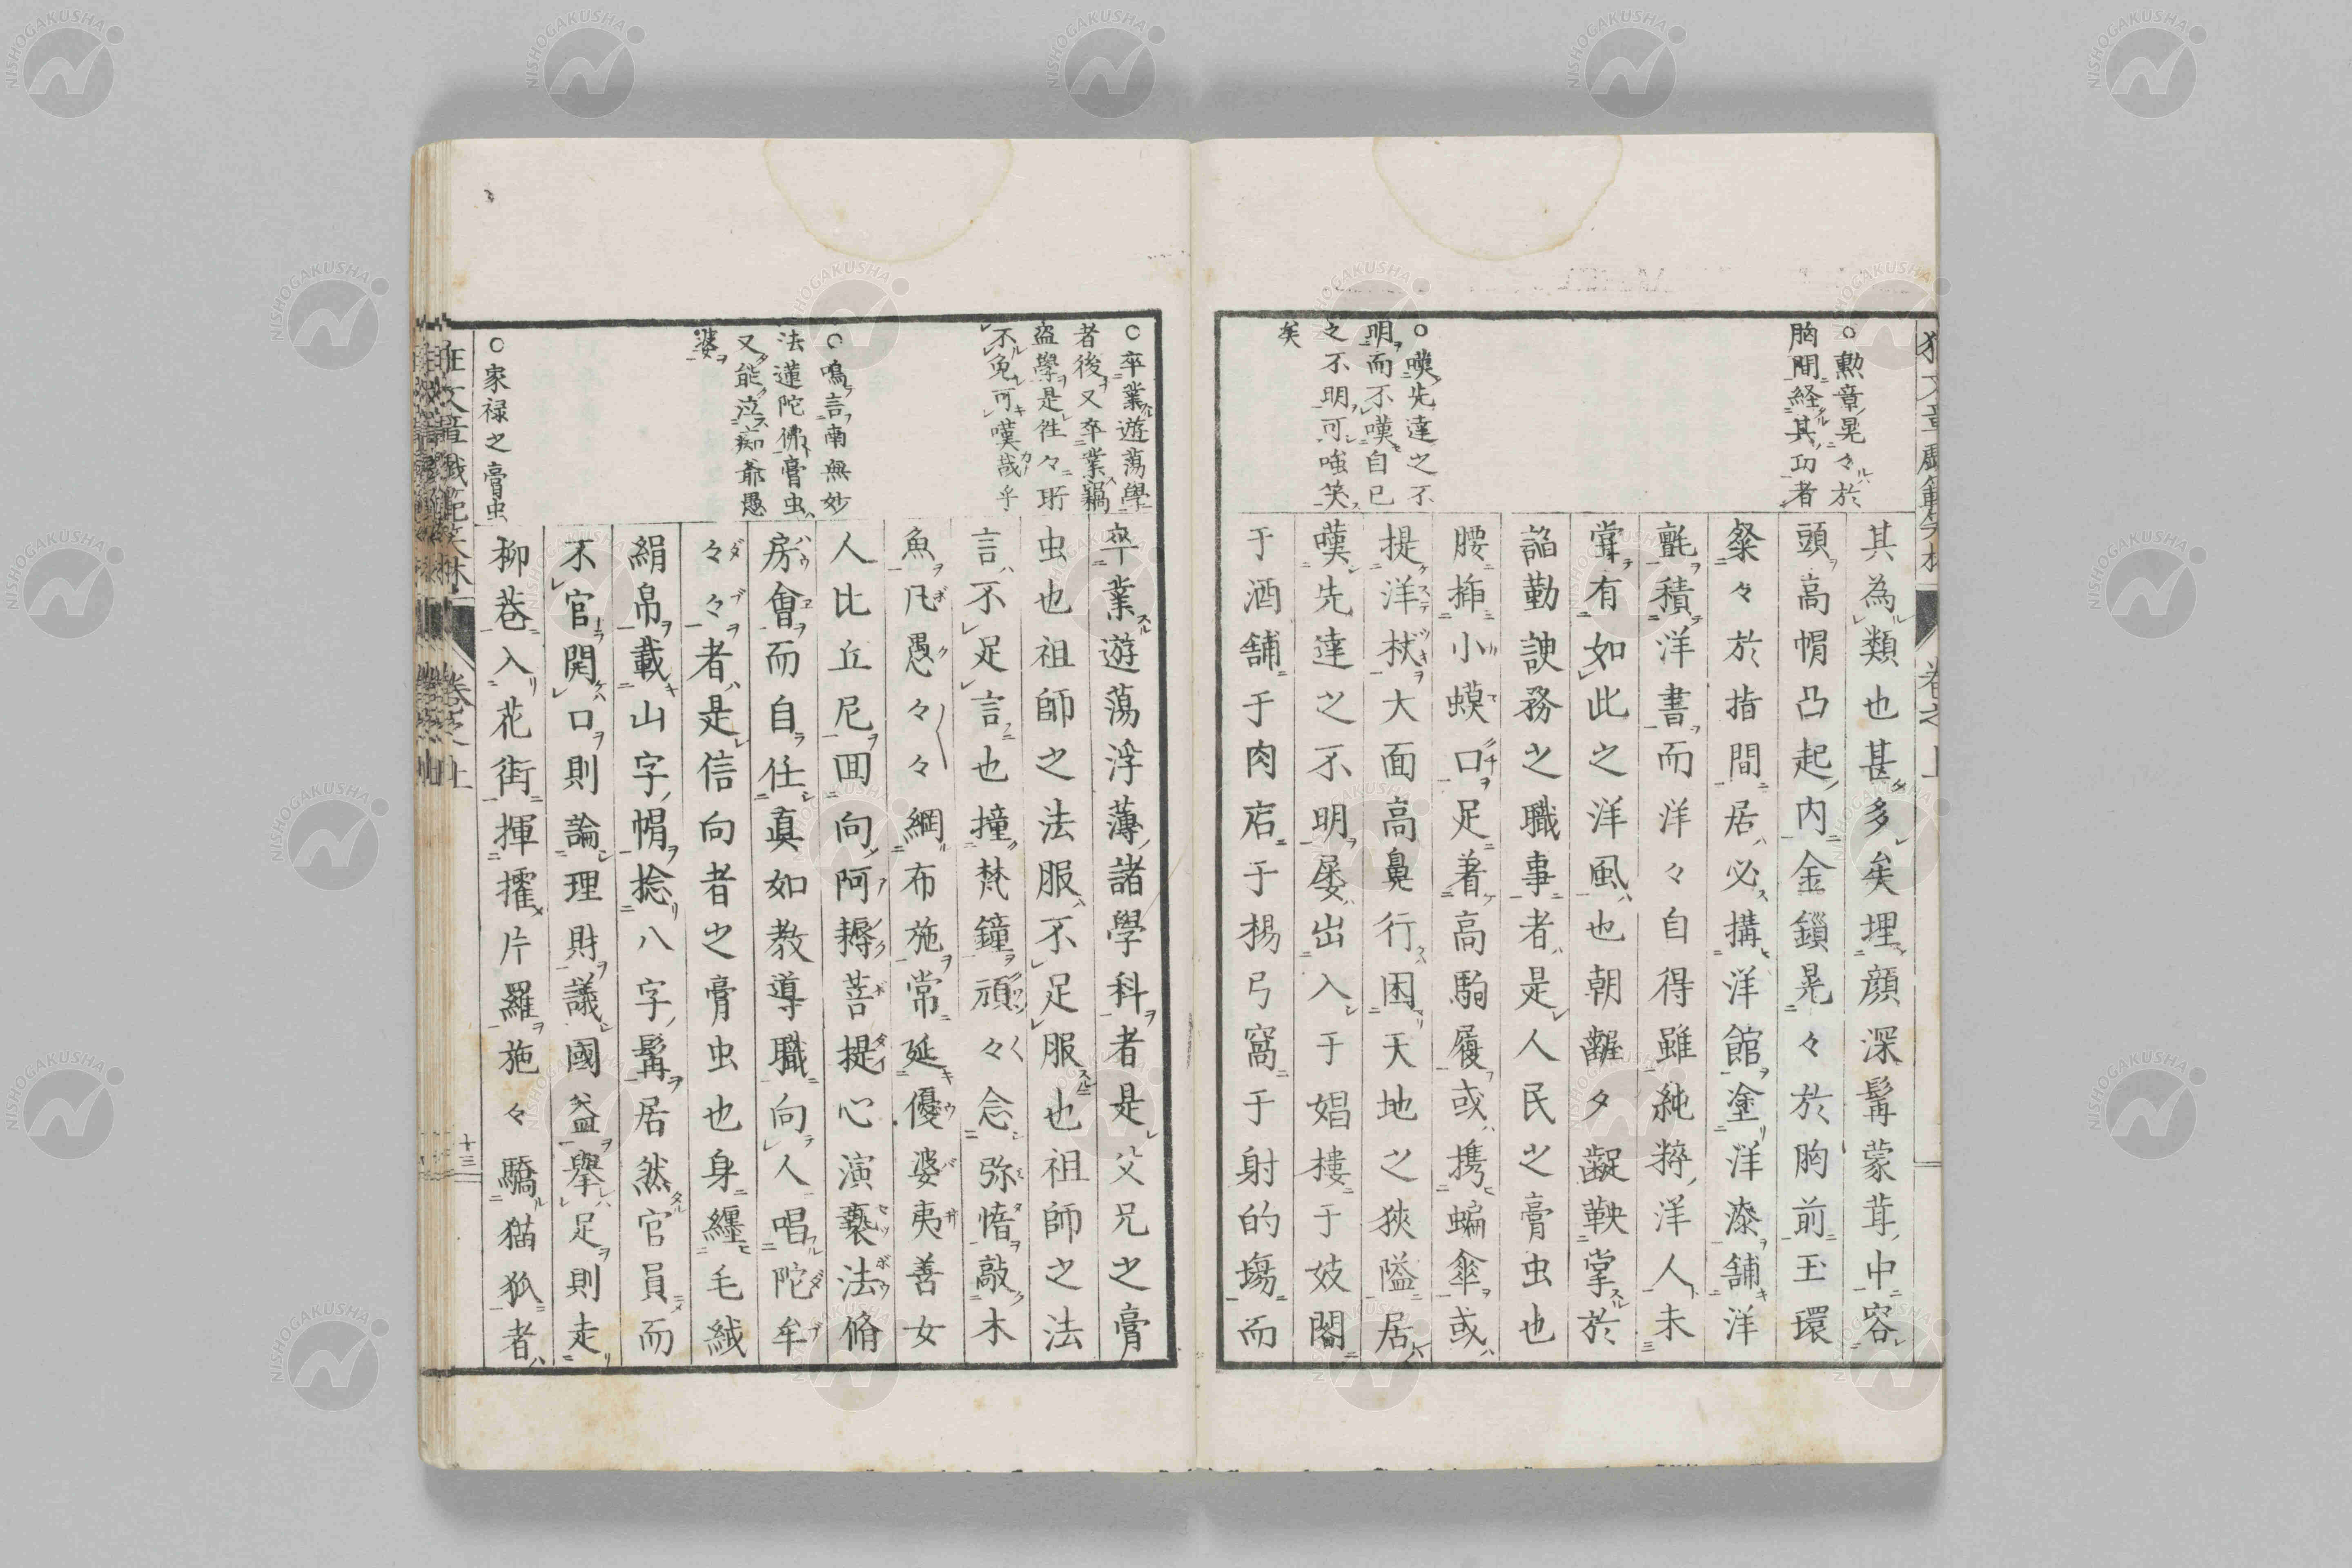 ○勲章晃々於
胸間経其功者
○嘆先達之不
明而不嘆自己
之不明可嗤笑
矣
其為類也甚多矣埋顔深髯蒙茸中容
頭高帽凸起内金鎖晃々於胸前玉環
粲々於指間居必搆洋館塗洋漆舗洋
氈積洋書而洋々自得雖純粹洋人未
嘗有如此之洋風也朝齷夕齪鞅掌於
諂勤諛務之職事者是人民之膏虫也
腰挿小蟆口足着高駒履或携蝙傘或
提洋杖大面高鼻行困天地之狹隘居
嘆先達之不明屡出入于娼摟于妓閣
于酒舗于肉店于楊弓窩于射的塲而
○卒業遊蕩學
者後又卒業竊
盗學是徃々所
不免可嘆哉乎
○鳴言南無妙
法蓮陀佛膏虫
又能泣痴爺愚
婆
○家禄之膏虫
卒業遊蕩浮薄諸學科者是父兄之膏
虫也祖師之法服不足服也祖師之法
言不足言也撞梵鐘頑々念弥愭敲木
魚凡愚々々網布施常延優婆夷善女
人比丘尼回向阿耨菩提心演褻法脩
房會而自任眞如教導職向人唱陀牟
々々者是信向者之膏虫也身纏毛絨
絹帛載山字帽捻八字髯居然官員而
不官開口則論理財議國益擧足則走
柳巷入花街揮擢片羅施々驕猫狐者
狂文章戯範笑林 卷之上 十三